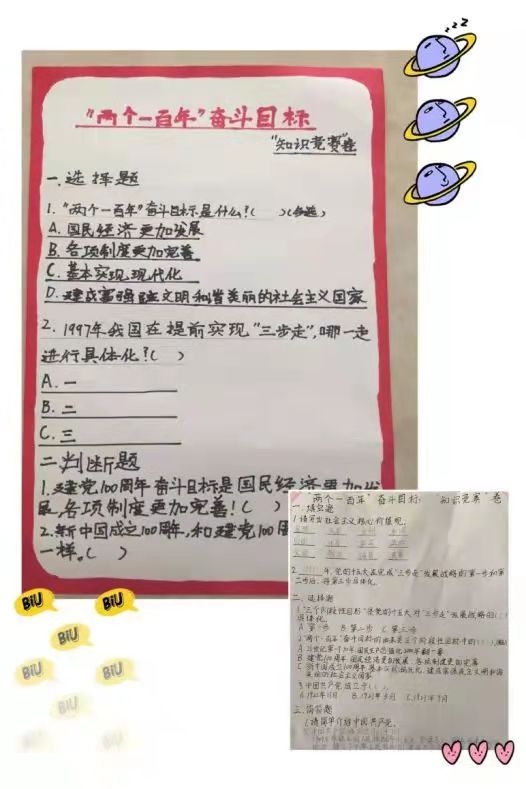 "两个一百年"奋斗目标
"知识竞赛"卷
一.选择题
1."两个一百年"奋斗目标是什么?( )(多选)
A.国民经济更加发展
B.各项制度更加完善
C.基本实现现代化
D.建成富强民主文明和谐美丽的社会主义国家
2.1997年我国在提前实现"三步走",哪一走
进行具体化?( )
A.一
B.二
C.三
二.判断题
1.建党100周年奋斗目标是国民经济更加发
展,各项制度更加完善!( )
2.新中国成立100周年,和建党100周
一样。( )
"两个一百年"奋斗目标: 知识竞赛"卷
一.填空题
1.请写出社会主义核心价值观。
2. 年,党的十五大在完成"三步走"发展战略的第一步和第
二步后,将第三步具体化。
二、选择题
1."三个阶段性目标"是党的十五大对"三步走"发展战略的( )
具体化。
A.第一步 B.第二步 C.第三步
2."两个一百年"奋斗目标的由来是三个阶段性目标中的( )
B.建党100周年,国民经济更加发展,各项制度更加完善
3.中国共产党成立于( )。
三.简答题
1.请简单介绍中国共产党。
BiU
BiU
BiU
BiU
BiU
BiU
BiU
zzz